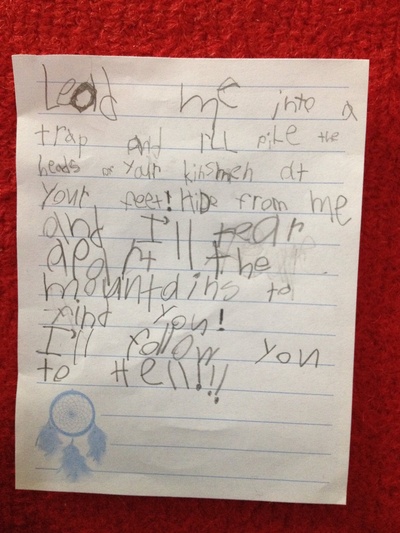 Lead me into a
trap and I'll pile the
heads of your kinsmen at
your feet! Hide from me
and I'll tear
apart the
mountains to
find you!
I'll follow you
to Hell!!!